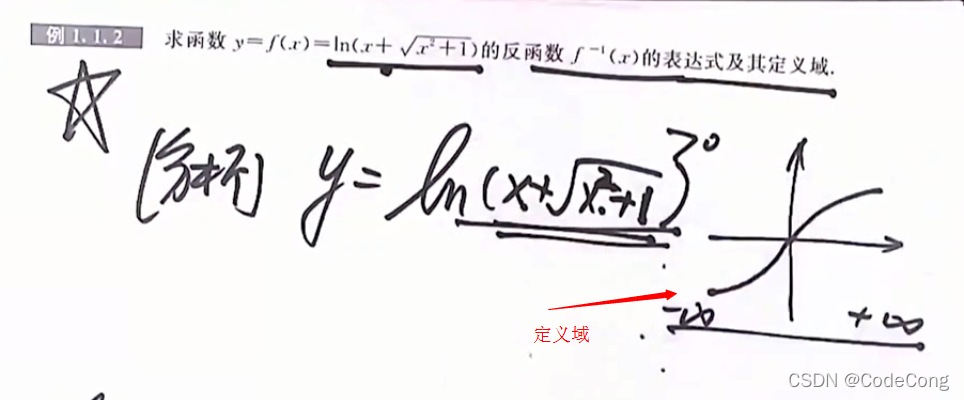 例 1.1.2 求函数 y=f(x)=ln(x+√(x²+1))的反函数 f⁻¹(x)的表达式及其定义域.
[分析] y=ln(x+√(x²+1)) }>0
定义域
-∞ +∞
CSDN @CodeCong